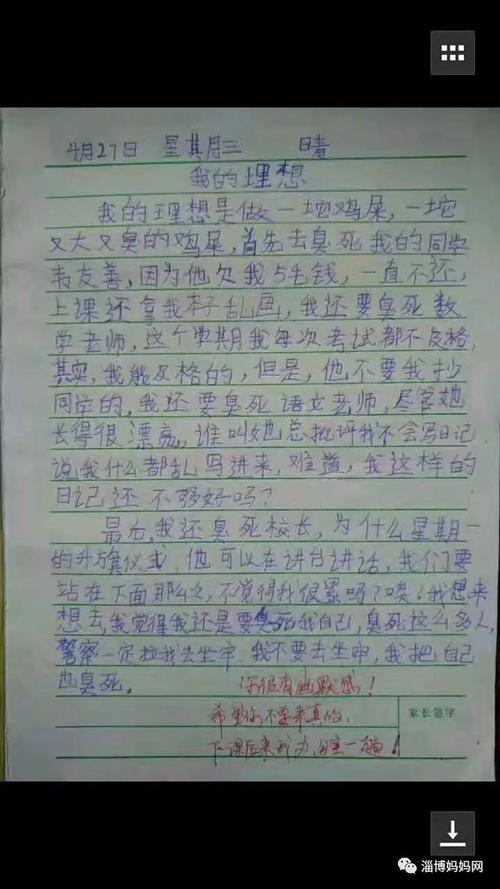 4月27日 星其月三 晴
我的理想
我的理想是做一坨鸡屎,一坨
又大又臭的鸡屎,首先去臭死我的同学
韦友善,因为他欠我5毛钱,一直不还,
上课还拿我本子乱画,我还要臭死数
学老师,这个学期我每次考试都不及格,
其实,我能及格的,但是,他不要我抄
同学的,我还要臭死语文老师,尽管她
长得很漂亮,谁叫她总批评我不会写日记
说我什么都乱写进来,难道,我这样的
日记还不够好吗?
最后,我还臭死校长,为什么星期一
的升旗仪式,他可以在讲台讲话,我们要
站在下面那么久,不觉得我很累吗?唉!我想来
想去,我觉得我还是要臭死我自己,臭死这么多人,
警察一定拉我去坐牢,我不要去坐牢,我把自己
也臭死。
你很有幽默感!
希望你不要来真的,
下课后来我办公室一趟!
家长签字
淄博妈妈网